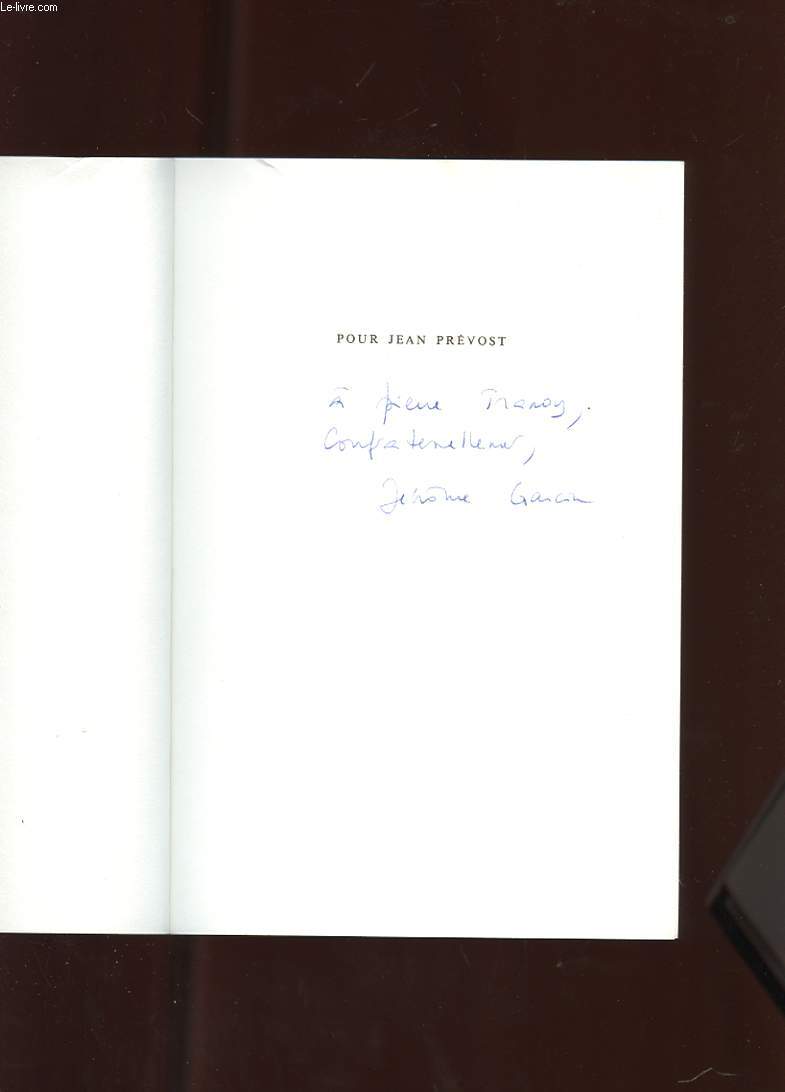 Le-livre.com
POUR JEAN PRÉVOST
À pierre Tranoy,
Confraternellement,
Jérôme Garcin